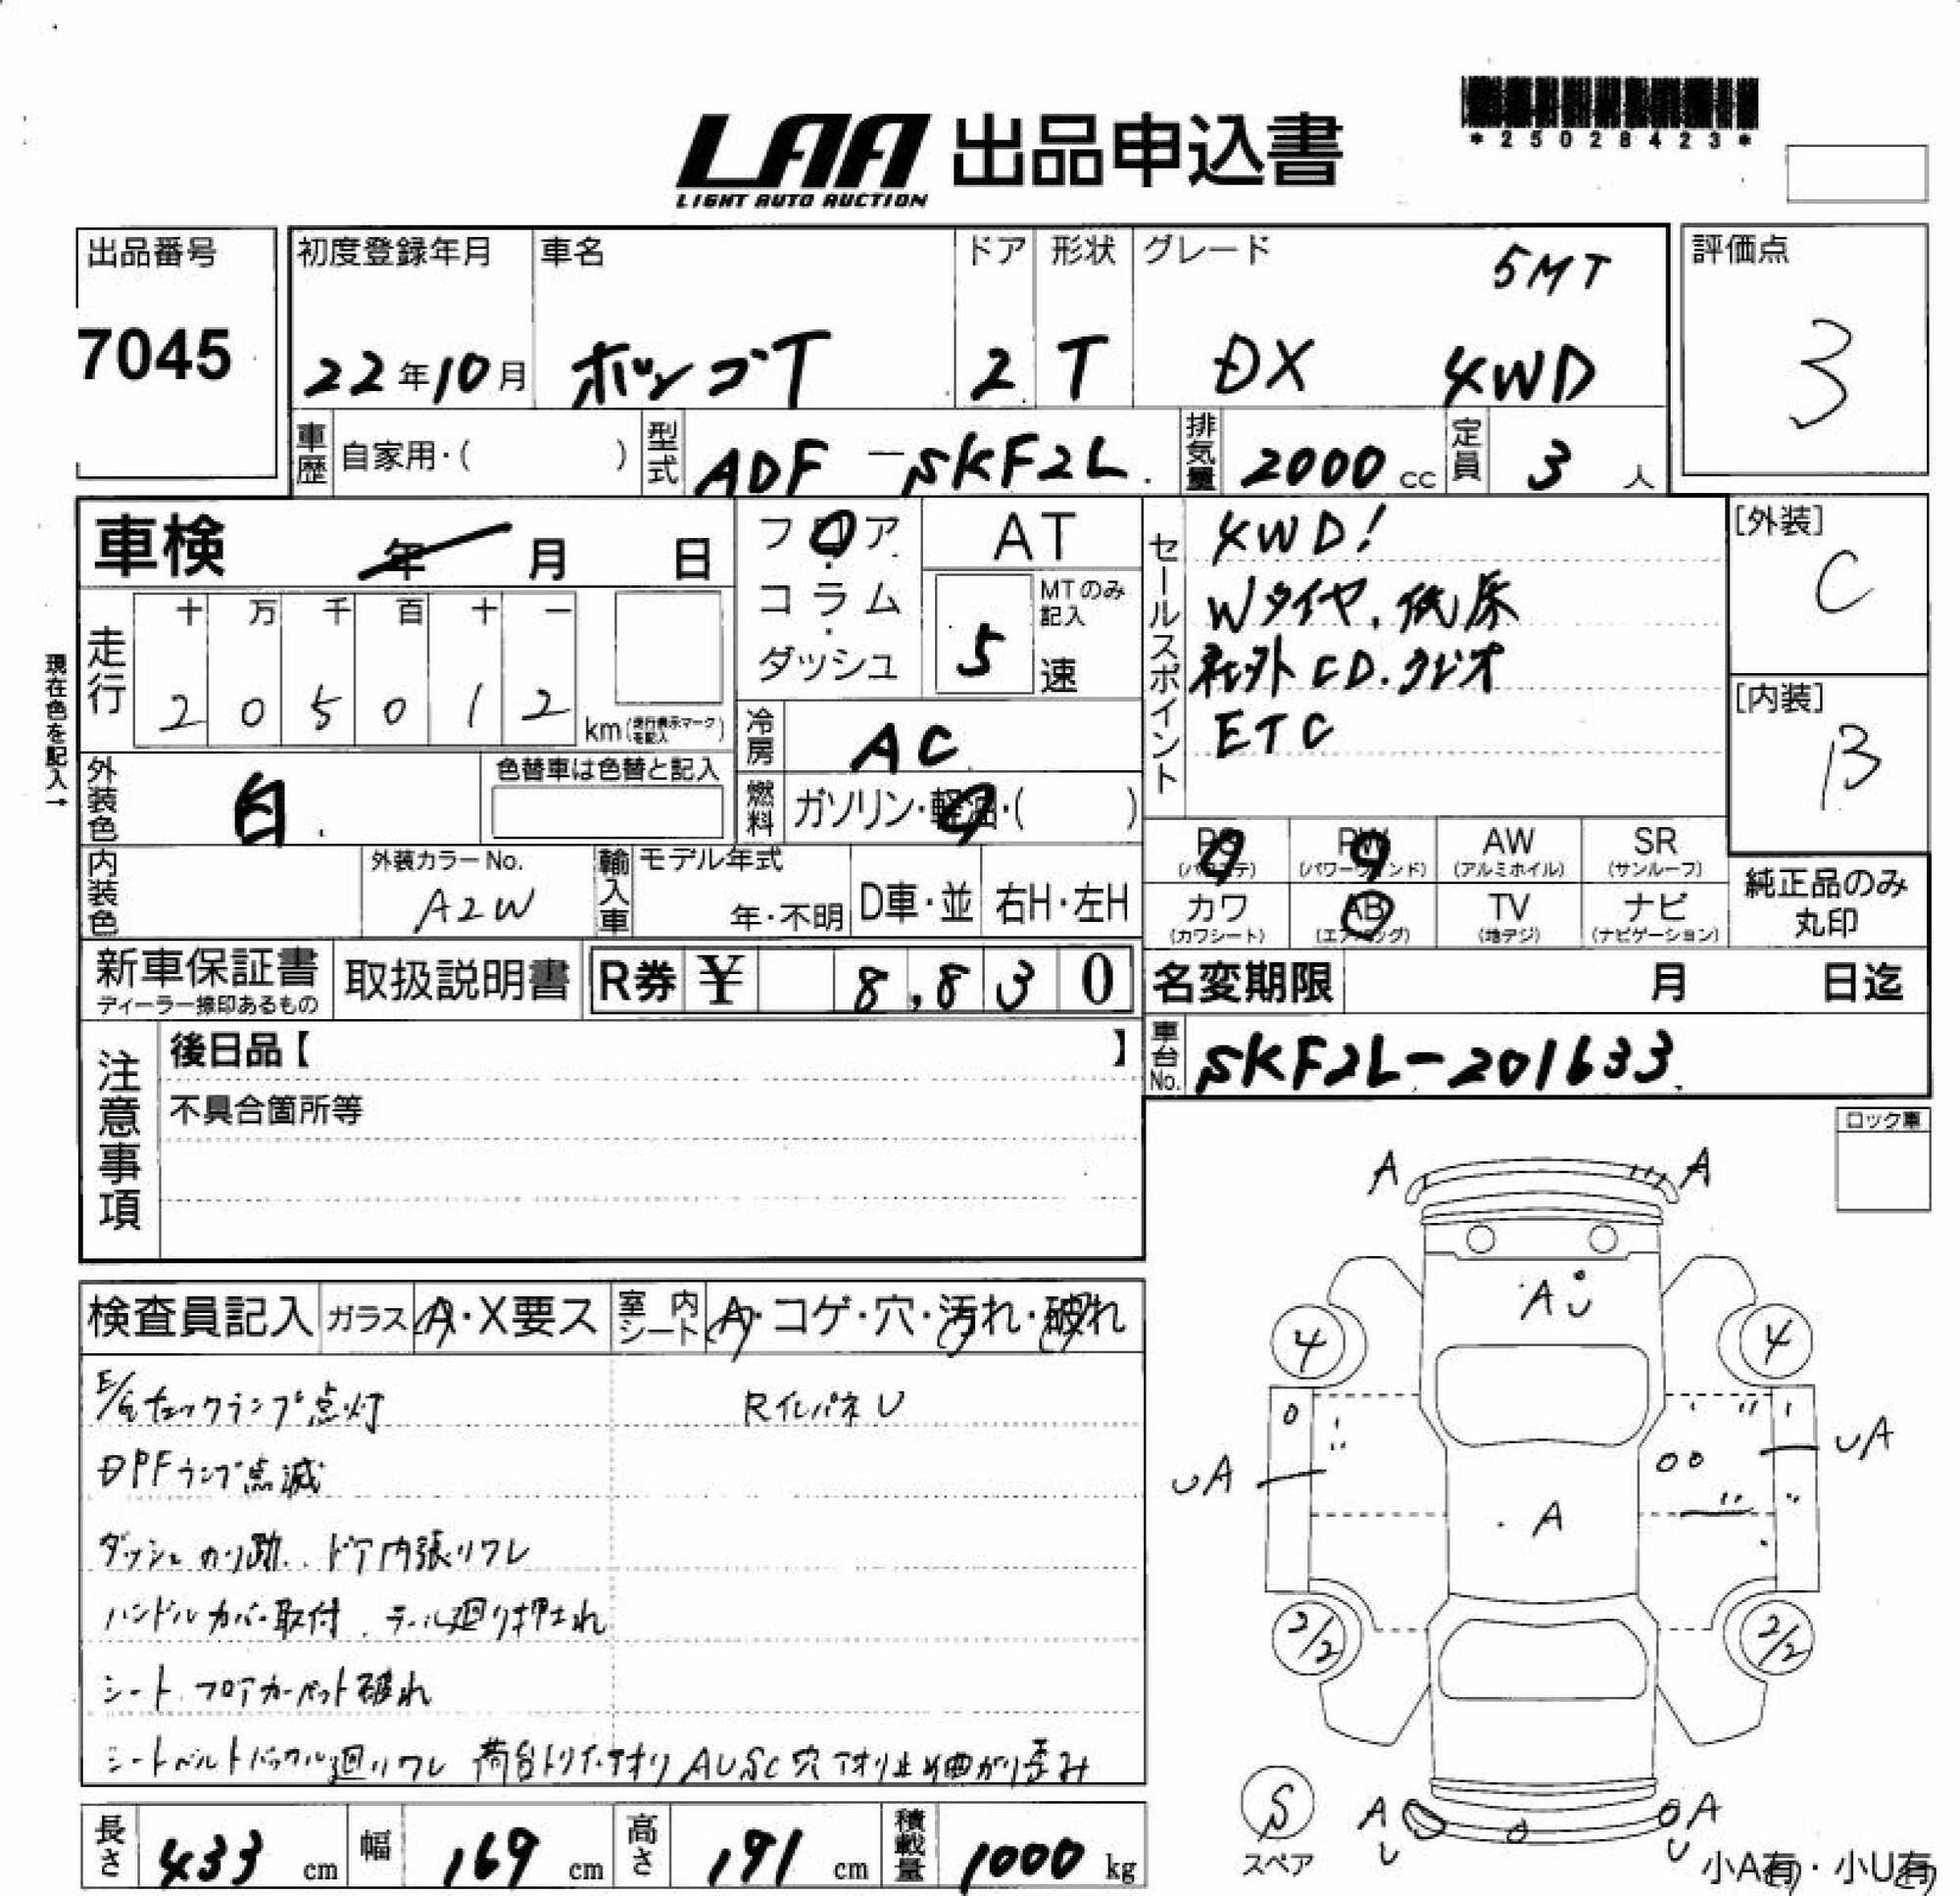 *25028423*
LAA 出品申込書
LIGHT AUTO AUCTION
出品番号
7045
初度登録年月
22年10月
車名
ボンゴT
ドア
2
形状
T
グレード
5MT
DX 4WD
評価点
3
車歴 自家用・( )
型式 ADF-SKF2L
排気量 2000 cc
定員 3 人
車検 年 月 日
フロア・コラム・ダッシュ
AT
MTのみ記入
5 速
セールスポイント
4WD!
Wタイヤ.低床
社外CD.ラジオ
ETC
[外装]
C
[内装]
B
現在色を記入→
走行
十 万 千 百 十 一
2 0 5 0 1 2
km(走行表示マークを記入)
冷房 AC
燃料 ガソリン・軽油・( )
外装色 白
色替車は色替と記入
内装色
外装カラーNo.
A2W
輸入車
モデル年式
年・不明
D車・並
右H・左H
PS (パワステ)
PW (パワーウィンド)
AW (アルミホイル)
SR (サンルーフ)
カワ (カワシート)
AB (エアバッグ)
TV (地デジ)
ナビ (ナビゲーション)
純正品のみ
丸印
新車保証書
ディーラー捺印あるもの
取扱説明書
R券 ¥ 8,830
名変期限 月 日迄
車台No. SKF2L-201633
注意事項
後日品【 】
不具合箇所等
ロック車
検査員記入 ガラス A・X要ス 室内シート A・コゲ・穴・汚れ・破れ
E/Gチェックランプ点灯 RインパネU
DPFランプ点滅
ダッシュカリ跡.ドア内張リワレ
ハンドルカバー取付.テール廻り押され
シート.フロアカーペット破れ
シートベルトバックル廻リワレ 荷台トリイ.アオリAUSC穴 アオリ止め曲がり歪み
A A
AU
4 4
UA UA
A
2/2 2/2
S
スペア
A U
A U
小A有・小U有
長さ 433 cm
幅 169 cm
高さ 191 cm
積載量 1000 kg